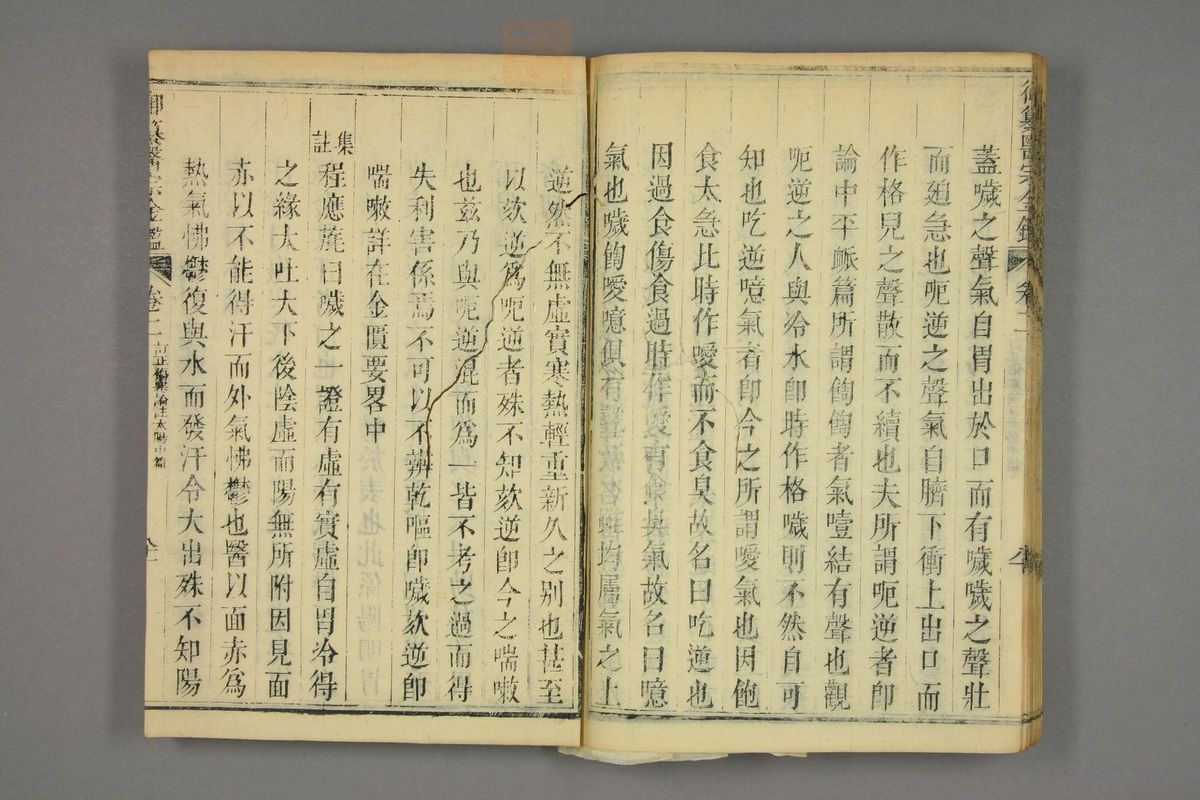 御纂醫宗金鑑 卷二
蓋噦之聲氣自胃出於口而有噦噦之聲壯
而廹急也呃逆之聲氣自臍下衝上出口而
作格兒之聲散而不續也夫所謂呃逆者卽
論中平脈篇所謂䭇䭇者氣噎結有聲也觀
呃逆之人與冷水卽時作格噦則不然自可
知也吃逆噫氣者卽今之所謂噯氣也因飽
食太急比時作噯而不食臭故名曰吃逆也
因過食傷食過時作噯有食臭氣故名曰噫
氣也噦䭇噯噫俱有聲故名雖均屬氣之上
逆然不無虛實寒熱輕重新久之別也甚至
以欬逆爲呃逆者殊不知欬逆卽今之喘嗽
也玆乃與呃逆混而爲一皆不考之過而得
失利害係焉不可以不辨乾嘔卽噦欬逆卽
喘嗽詳在金匱要畧中
集註
程應旄曰噦之一證有虛有實虛自胃冷得
之緣大吐大下後陰虛而陽無所附因見面
赤以不能得汗而外氣怫鬱也醫以面赤爲
熱氣怫鬱復與水而發汗令大出殊不知陽
御纂醫宗金鑑 卷二 訂正傷寒論註太陽中篇